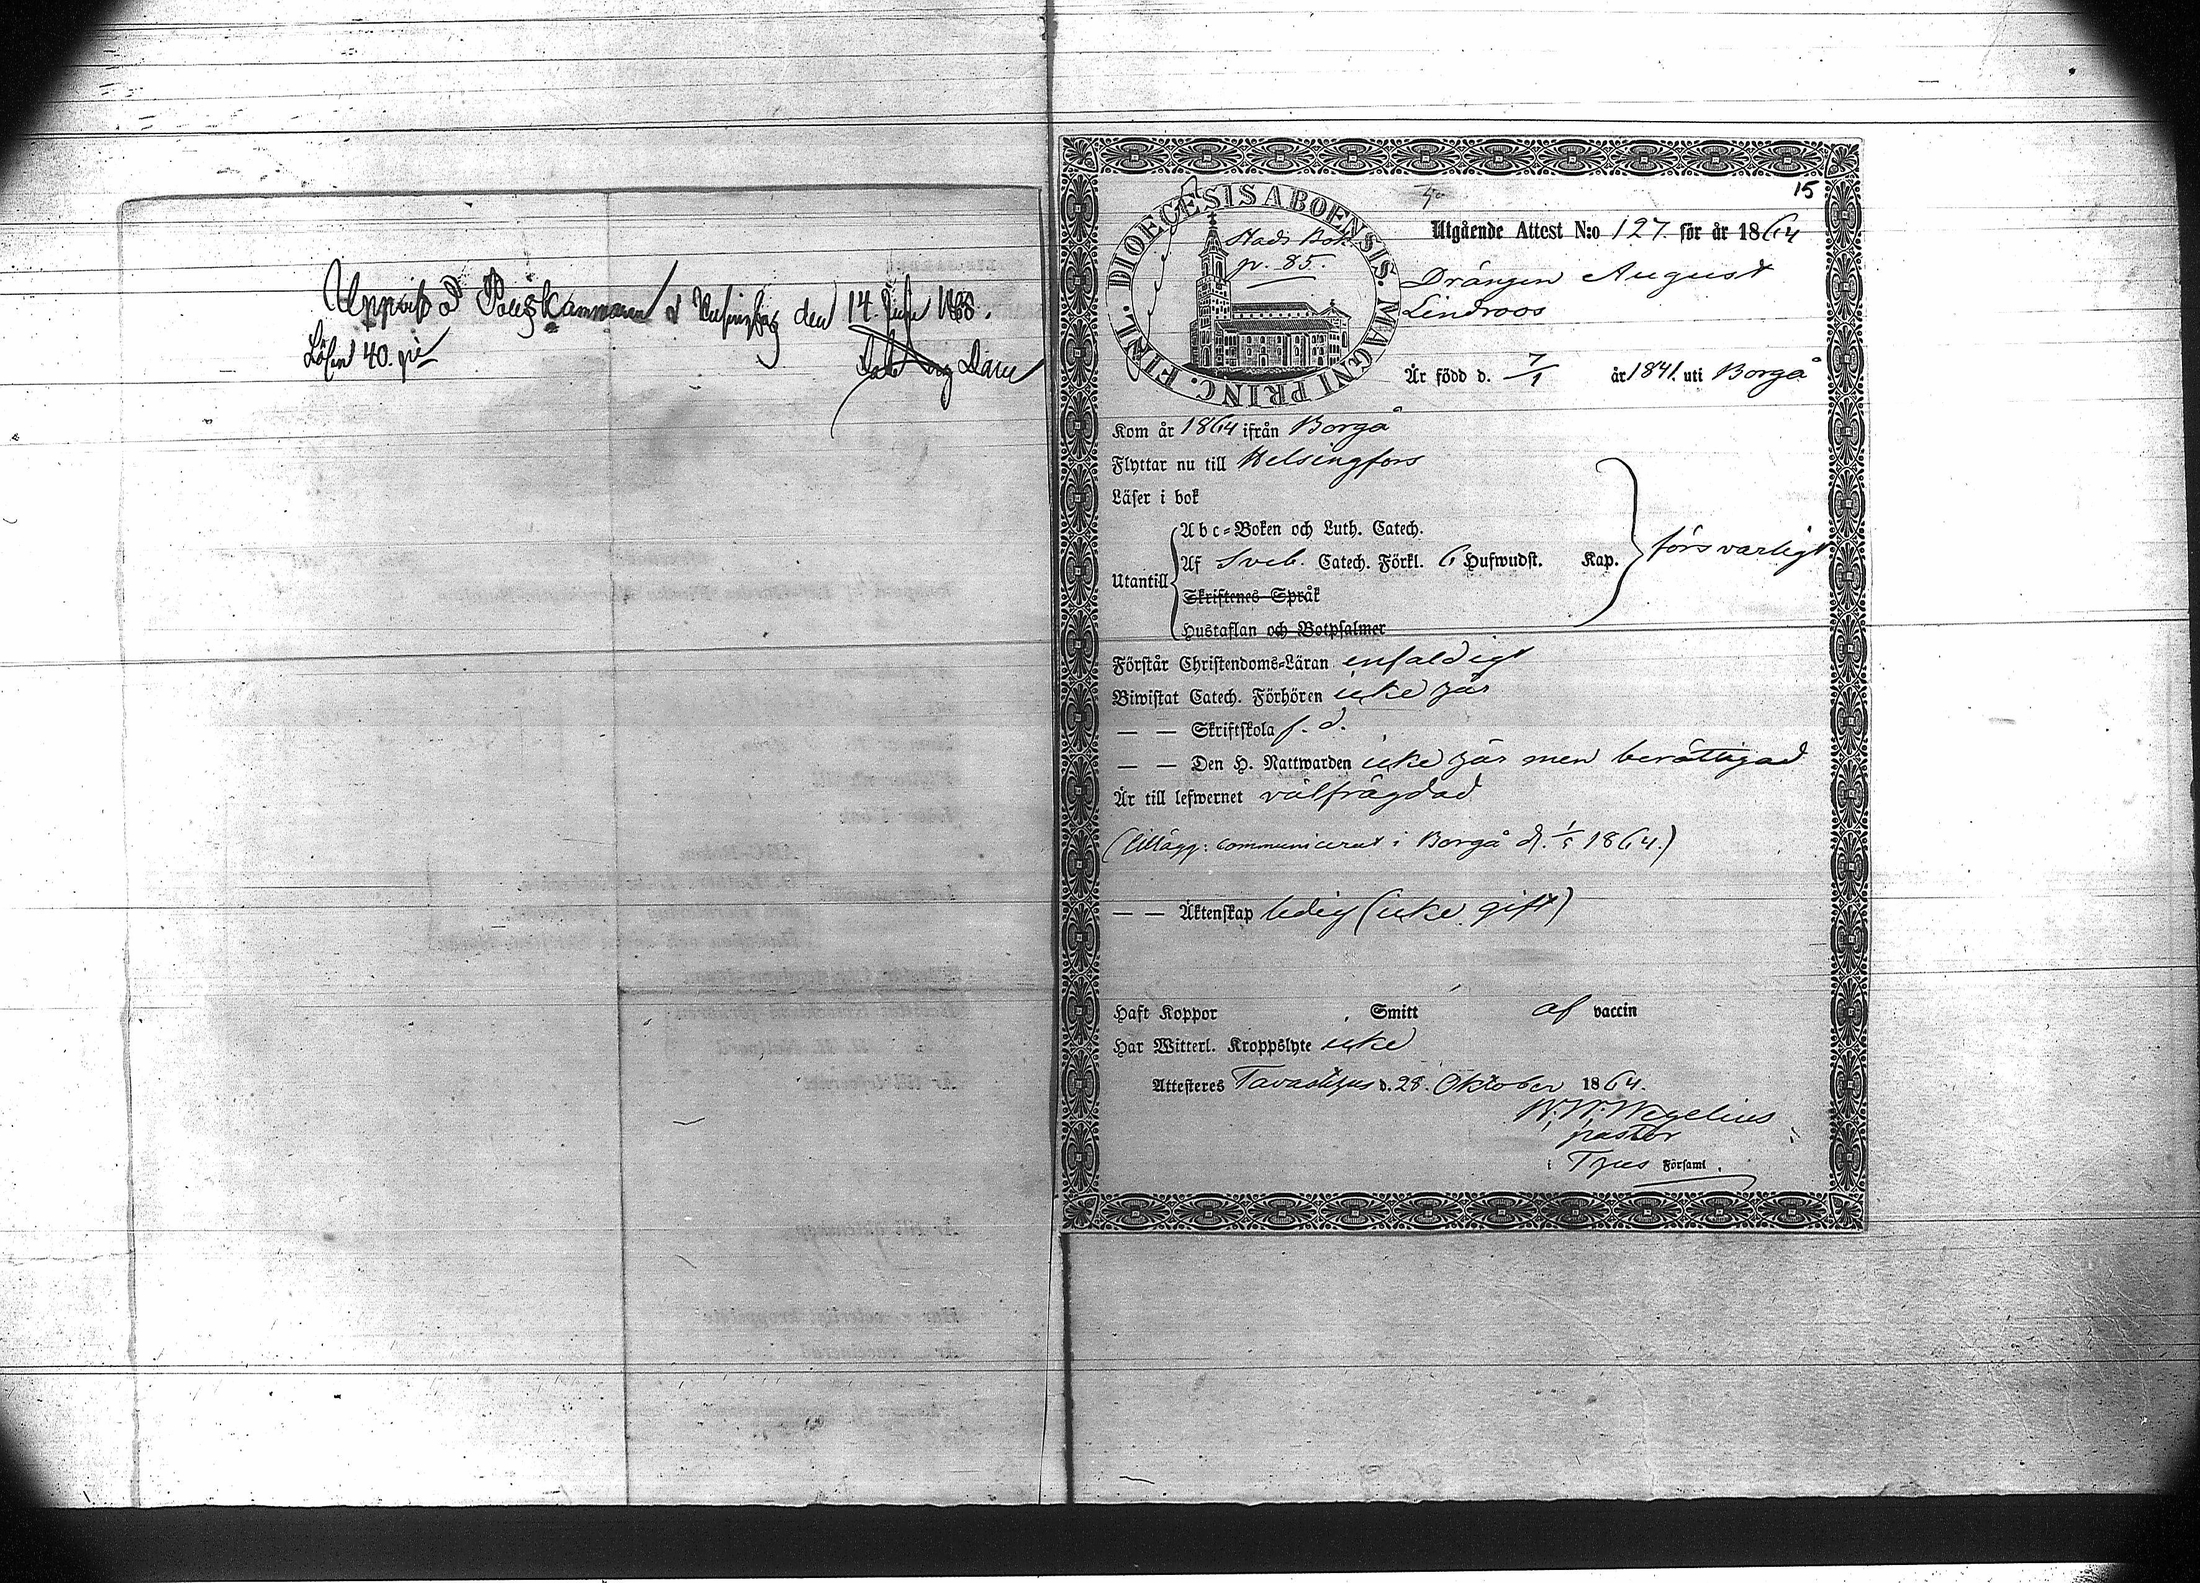 Uppvist å Poliskammaren i Helsingfors den 14. 
Lösen 40. pi
15
DIOECESIS ABOENSIS. MAGNI PRINC. FINL.
Stads Bok
p. 85.
Utgående Attest N:o 127. för år 1864
Drängen August
Lindroos
Är född d. 7/1 år 1841. uti Borgå
Kom år 1864 ifrån Borgå
Flyttar nu till Helsingfors
Läser i bok
Utantill
Abc-Boken och Luth. Catech.
Af Sveb. Catech. Förkl. 6 Hufwudst. Kap.
Skriftenes Språk
Hustaflan och Botpsalmer
försvarligt
Förstår Christendoms-Läran enfaldigt
Biwistat Catech. Förhören icke här
— — Skriftskola f. d.
— — Den H. Nattwarden icke här men berättigad
Är till lefwernet välfrägdad
(tillägg: communicerat i Borgå d. 1/5 1864.)
— — Äktenskap ledig (icke gift)
Haft Koppor Smitt af vaccin
Har Witterl. Kroppslyte icke
Attesteres Tavastehus d. 28. Oktober 1864.
Wegelius
pastor
i Thus Församl.